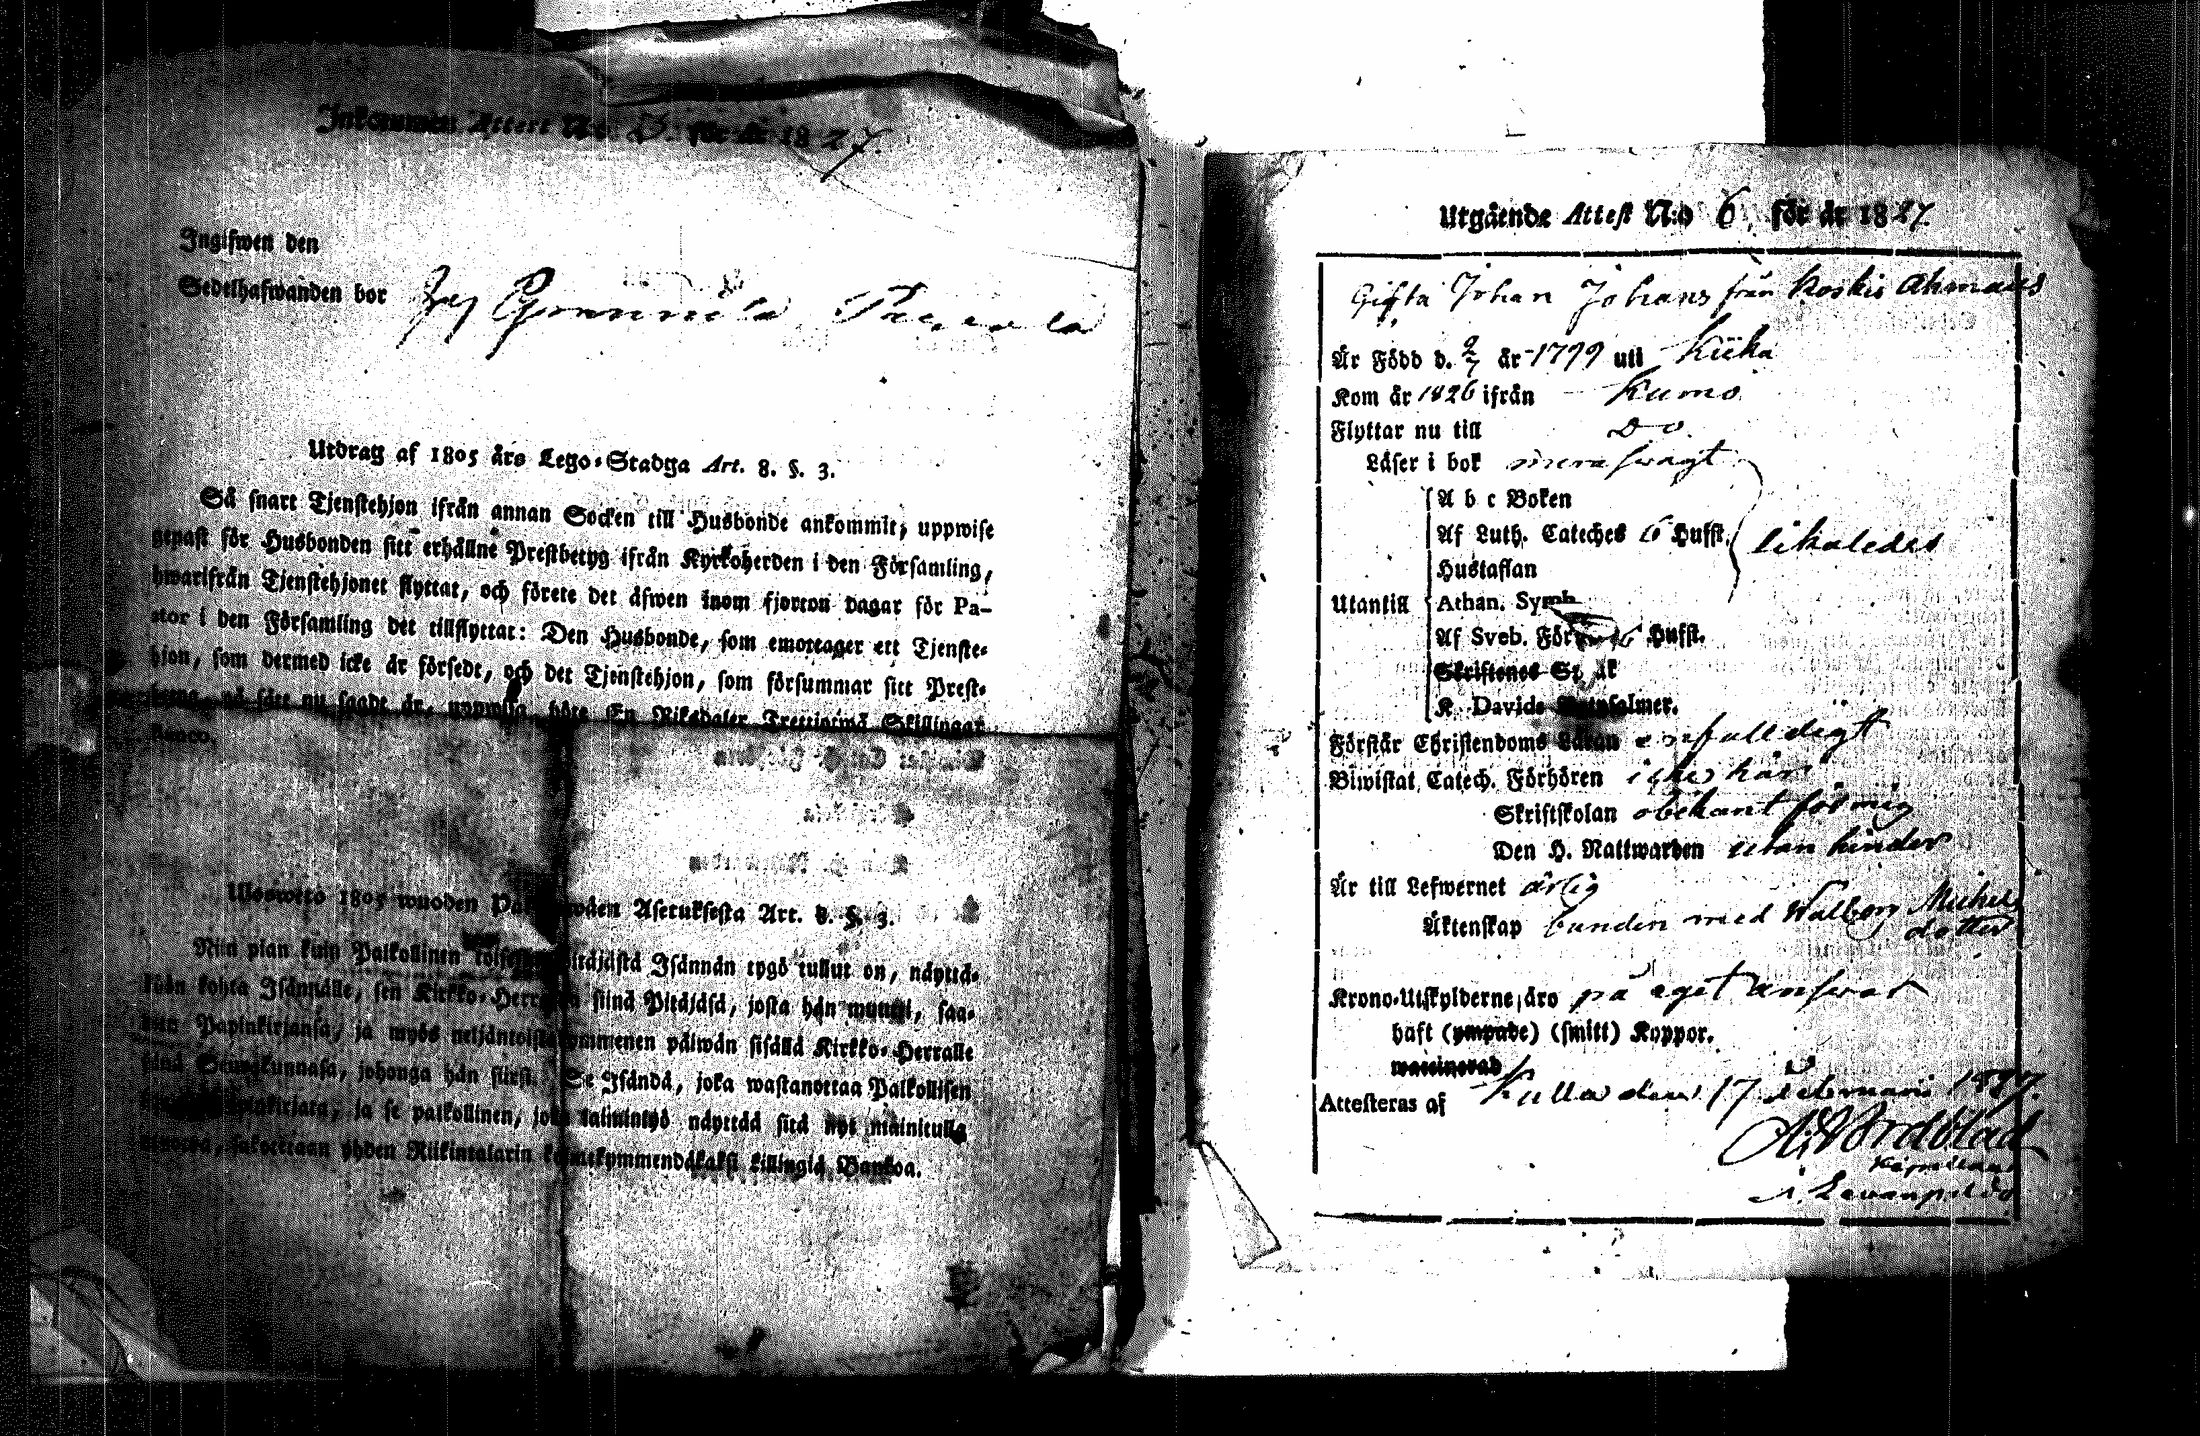 Inkommen Attest No 5. för år 1827.
Ingifwen den
Sedelhafwanden bor
Utdrag af 1805 års Lego-Stadga Art. 8. §. 3.
Så snart Tjenstehjon ifrån annan Socken till Husbonde ankommit, uppwise
genast för Husbonden sitt erhållne Prestbetyg ifrån Kyrkoherden i den Församling,
hwarifrån Tjenstehjonet flyttat, och förete det äfwen inom fjorton dagar för Pa-
stor i den Församling det tillflyttat: Den Husbonde, som emottager ett Tjenste-
hjon, som dermed icke är försedt, och det Tjenstehjon, som försummar sitt Prest-
på sätt nu sagdt är, uppwisa, böte En Riksdaler Trettiotwå Skillingar
Banco.
Ulosweto 1805 wuoden Asetuksesta Art. 8. §. 3.
Niin pian kuin Palkollinen Isännän tygö tullut on, näyttä-
kohta Isännälle, sen Kirkko-Herr siinä Pitäjäsä, josta hän muutti, saa-
Papinkirjansa, ja myös päiwän sisällä Kirkko-Herralle
siinä Seurakunnasa, johonga hän siirsi. Se Isändä, joka wastanottaa Palkollisen
ja se palkollinen, joka laiminlyö näyttää sitä nyt mainitulla
sakoitetaan yhden Riikintalarin kolmekymmendäkaksi killingiä Bankoa.
Utgående Attest N:o 6. för år 1827.
Gifta Johan Johans från Koskis Ahmaus
Är Född d. 2/7 år 1799 uti Kiika
Kom år 1826 ifrån Kumo
Flyttar nu till Do.
Läser i bok mera swagt
A b c Boken
Af Luth. Cateches 6 Hufst. likaledes
Hustaflan
Utantill Athan. Symb.
Af Sveb. För 6 Hufst.
Skriftenes St. äk
K. Davids Botpsalmer.
Förstår Christendoms Läran enfalldigt
Biwistat Catech. Förhören icke här
Skriftskolan obekant för mig
Den H. Nattwarden utan hinder
Är till Lefwernet ärlig
Äktenskap bunden med Walborg Michels
dotter
Krono-Utskylderne äro på eget answar
haft (ympade) (smitt) Koppor.
waccinerad
Attesteras af Kulla den 17 Februarii 1827.
Nordblad
Kapellan